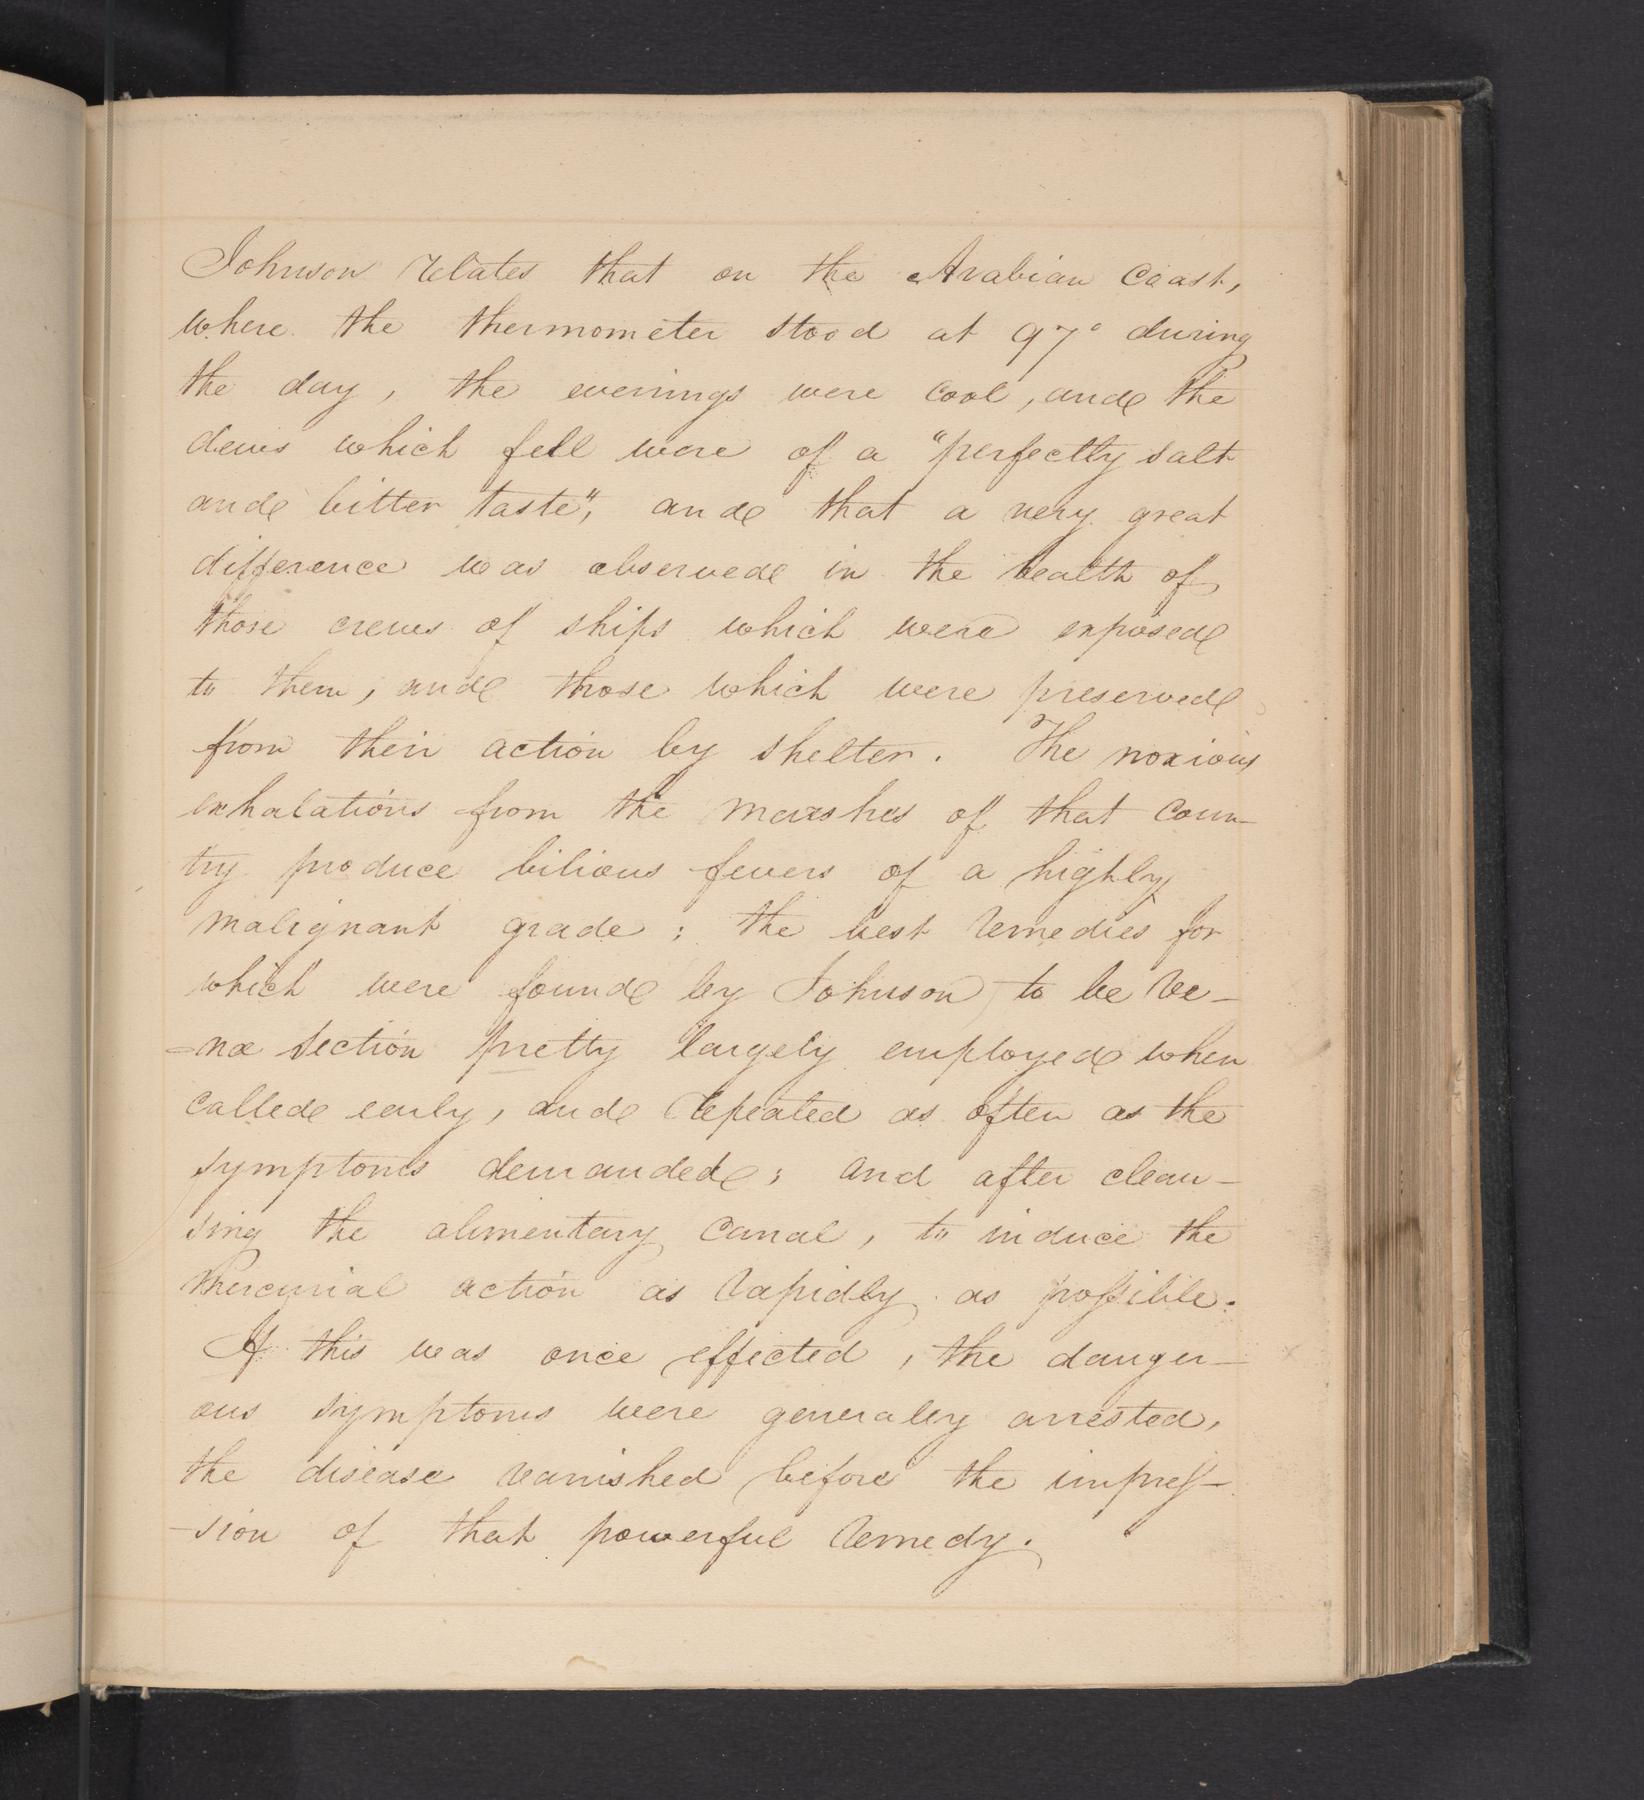 Johnson relates that on the Arabian Coast,
where the thermometer stood at 97° during
the day, the evenings were cool, and the
dews which fell were of a "perfectly salt
and bitter taste", and that a very great
difference was observed in the health of
those crews of ships which were exposed
to them, and those which were preserved
from their action by shelter. The noxious
exhalations from the marshes of that coun-
try produce bilious fevers of a highly
malignant grade; the best remedies for
which were found by Johnson to be ve-
=næ section pretty largely employed when
called early, and repeated as often as the
symptoms demanded; and after clean-
sing the alimentary canal, to induce the
mercurial action as rapidly as possible.
If this was once effected, the danger-
ous symptoms were generaly arrested,
the disease vanished before the impres-
-sion of that powerful remedy.